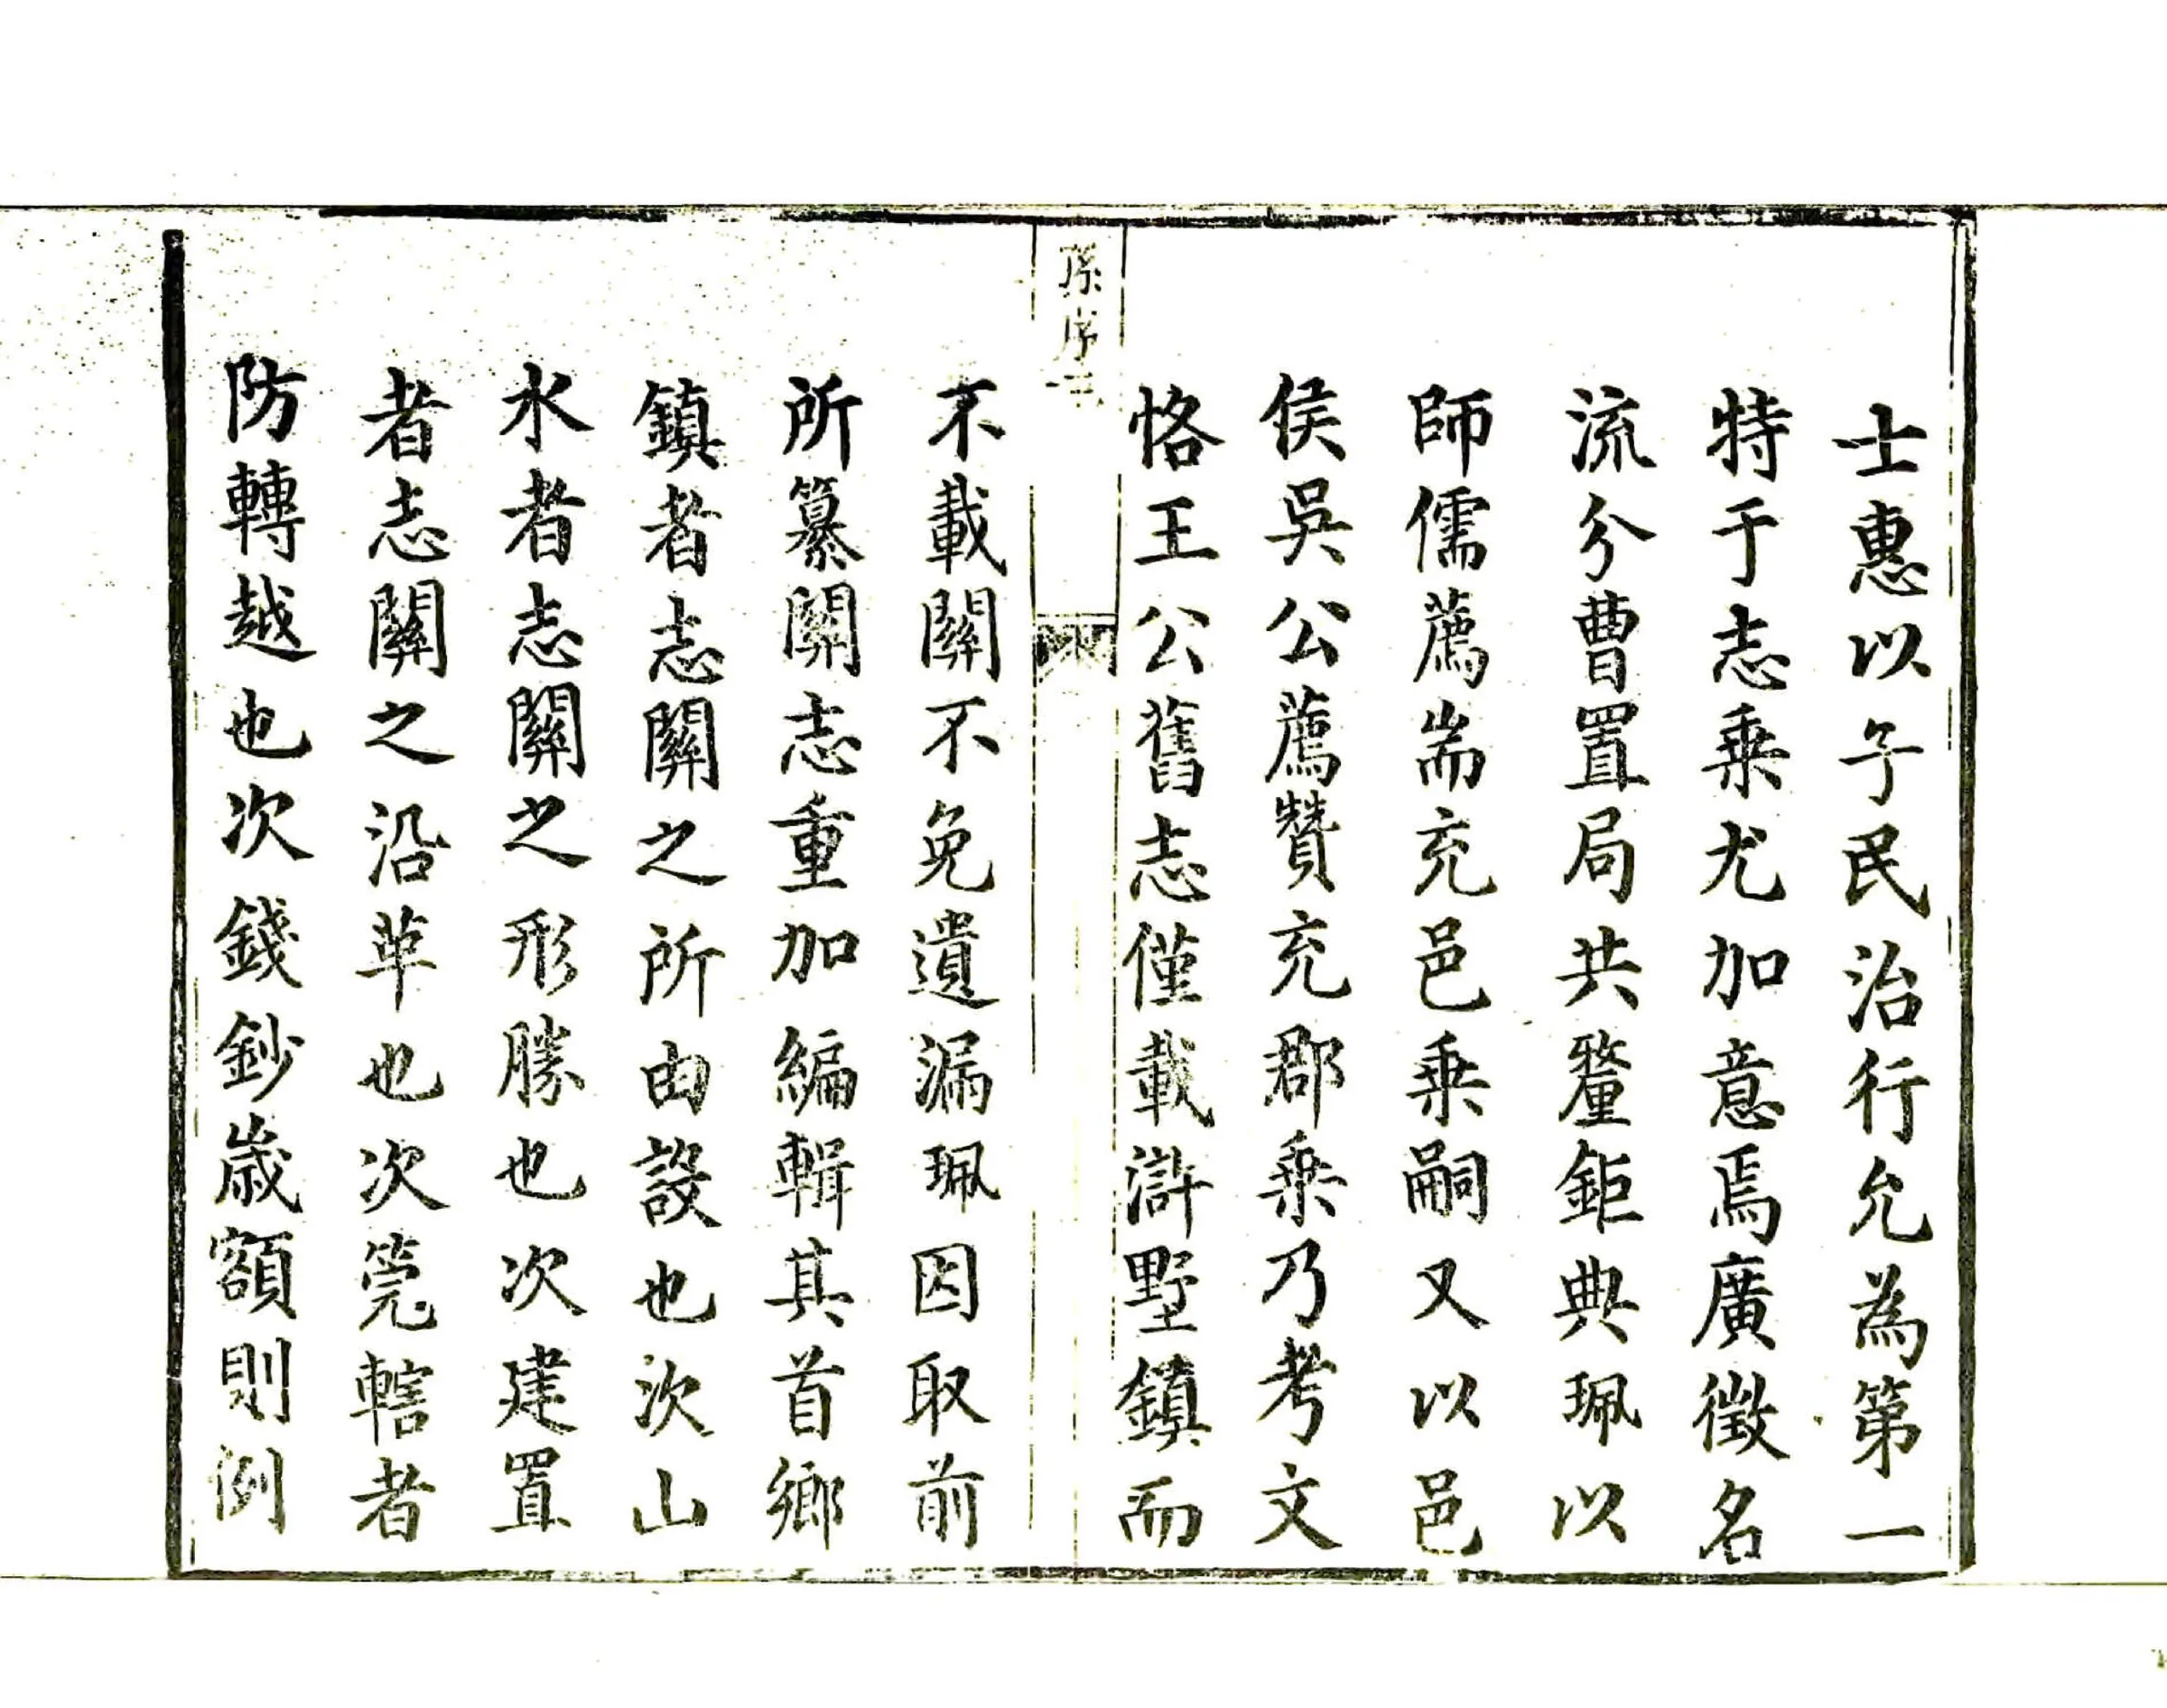 士惠以子民治行允為第一
特于志乗尤加意焉廣徵名
流分曹置局共釐鉅典珮以
師儒薦耑充邑乗嗣又以邑
侯吳公薦贊充郡乗乃考文
恪王公舊志僅載滸墅鎮而
孫序三
不載關不免遺漏珮因取前
所纂關志重加編輯其首鄉
鎮者志關之所由設也次山
水者志關之形勝也次建置
者志關之沿革也次筦轄者
防轉越也次錢鈔歲額則例